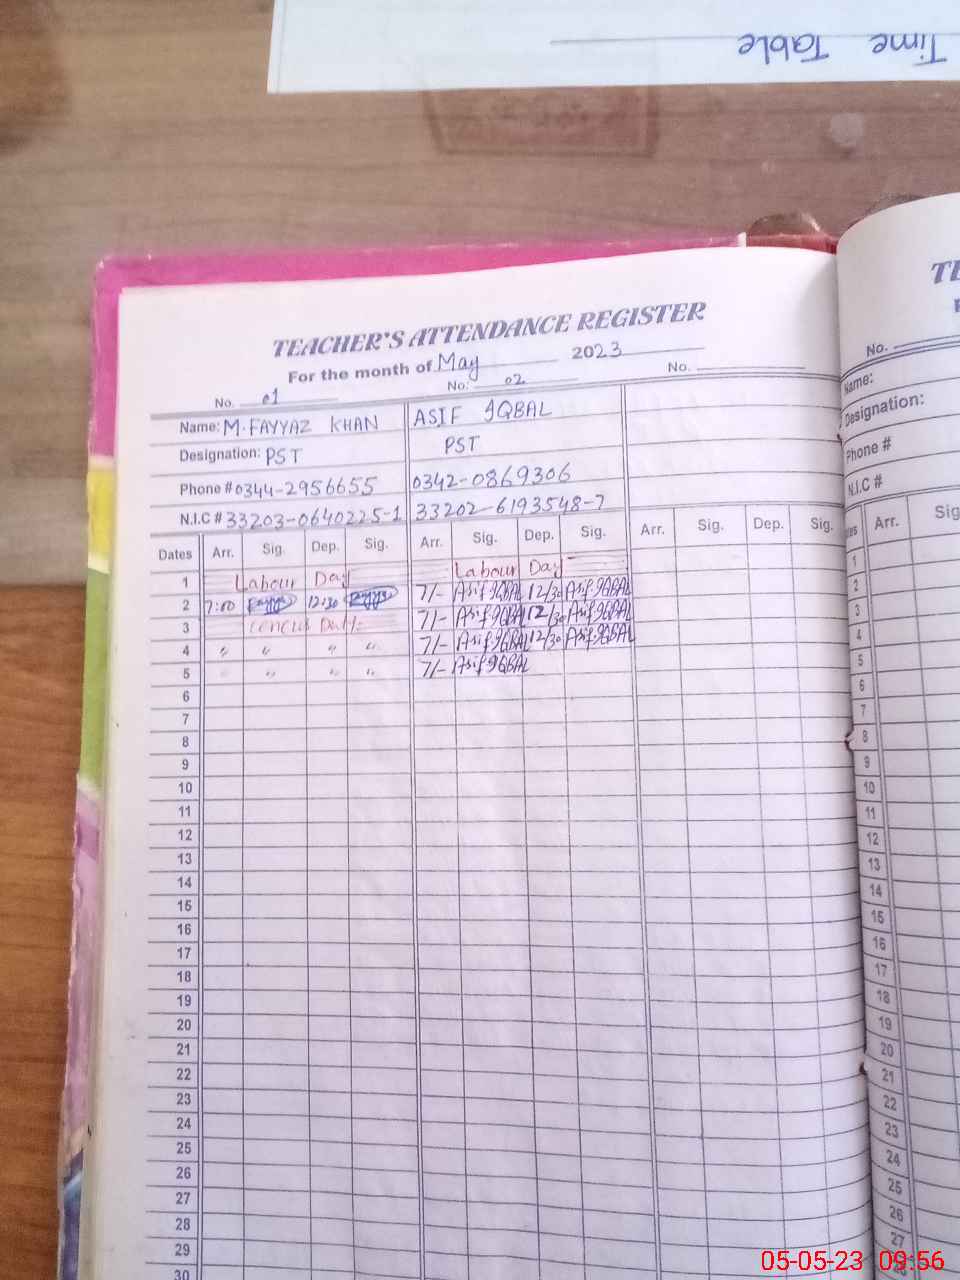 Time Table
TEACHER'S ATTENDANCE REGISTER
For the month of May 2023
No. 01 No: 02 No.
Name: M. FAYYAZ KHAN ASIF IQBAL
Designation: PST PST
Phone # 0344-2956655 0342-0869306
N.I.C # 33203-0640225-1 33202-6193548-7
Dates Arr. Sig. Dep. Sig. Arr. Sig. Dep. Sig. Arr. Sig. Dep. Sig.
1 Labour Day Labour Day
2 7:00 12:30 7/- Asif IQBAL 12/30 Asif IQBAL
3 7/- Asif IQBAL 12/30 Asif IQBAL
4 " " " " 7/- Asif IQBAL 12/30 Asif IQBAL
5 " " " 7/- Asif IQBAL
6
7
8
9
10
11
12
13
14
15
16
17
18
19
20
21
22
23
24
25
26
27
28
29
30
No.
Name:
Designation:
Phone #
N.I.C #
Arr. Sig
1
2
3
4
5
6
7
8
9
10
11
12
13
14
15
16
17
18
19
20
21
22
23
24
25
26
27
05-05-23 09:56